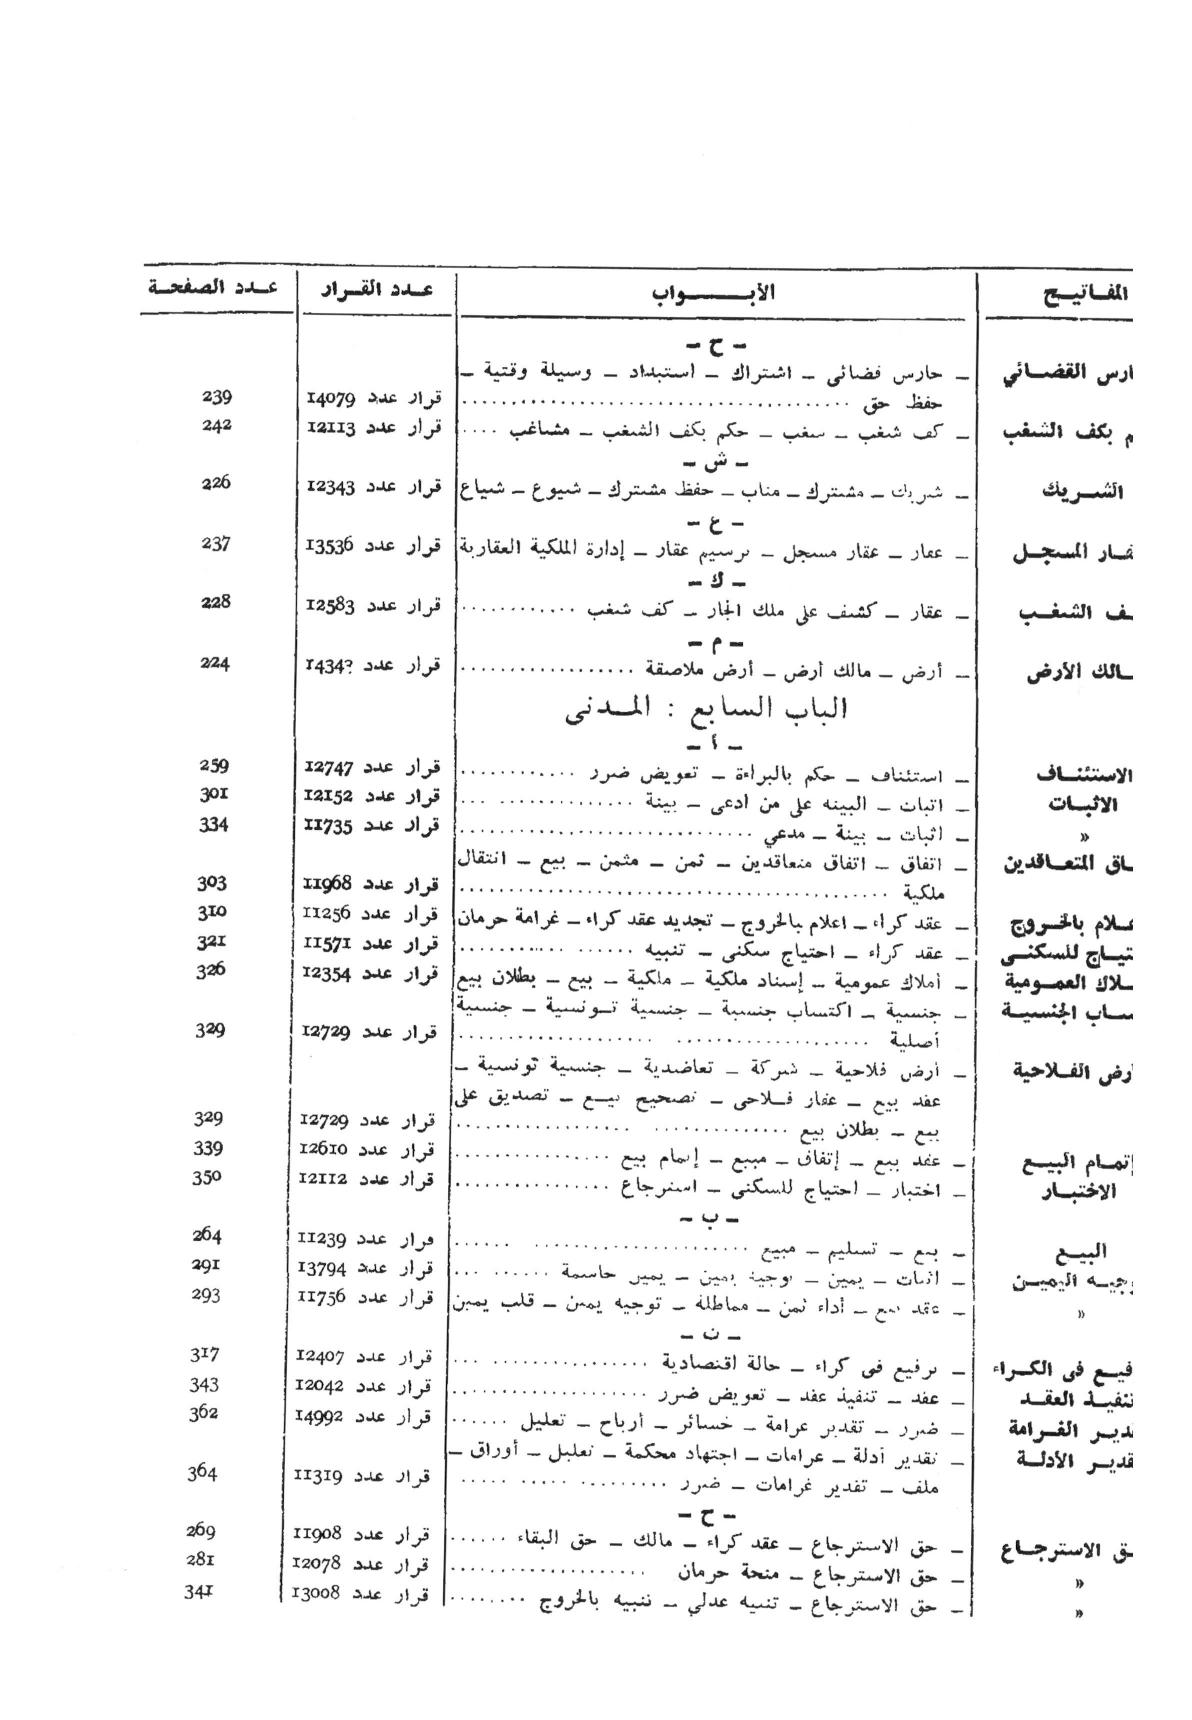 المفاتيح الأبواب عدد القرار عدد الصفحة
– ح –
ارس القضائي – حارس قضائى – اشتراك – استبداد – وسيلة وقتية –
حفظ حق ........ قرار عدد 14079 239
م بكف الشغب – كف شغب – شغب – حكم بكف الشغب – مشاغب .... قرار عدد 12113 242
– ش –
الشريك – شريك – مشترك – مناب – حفظ مشترك – شيوع – شياع قرار عدد 12343 226
– ع –
قار المسجل – عقار – عقار مسجل – ترسيم عقار – إدارة الملكية العقارية قرار عدد 13536 237
– ك –
ف الشغب – عقار – كشف على ملك الجار – كف شغب ........ قرار عدد 12583 228
– م –
الك الأرض – أرض – مالك أرض – أرض ملاصقة ........ قرار عدد 1434? 224
الباب السابع : المدنى
– أ –
الاستئناف – استئناف – حكم بالبراءة – تعويض ضرر ........ قرار عدد 12747 259
الاثبات – اثبات – البينه على من ادعى – بينة ........ قرار عدد 12152 301
» – اثبات – بينة – مدعي ........ قرار عدد 11735 334
اق المتعاقدين – اتفاق – اتفاق متعاقدين – ثمن – مثمن – بيع – انتقال
ملكية ........ قرار عدد 11968 303
علام بالخروج – عقد كراء – اعلام بالخروج – تجديد عقد كراء – غرامة حرمان قرار عدد 11256 310
تياج للسكنى – عقد كراء – احتياج سكنى – تنبيه ........ قرار عدد 11571 321
لاك العمومية – أملاك عمومية – إسناد ملكية – ملكية – بيع – بطلان بيع قرار عدد 12354 326
ساب الجنسية – جنسية – اكتساب جنسية – جنسية تونسية – جنسية
أصلية ........ قرار عدد 12729 329
رض الفلاحية – أرض فلاحية – شركة – تعاضدية – جنسية تونسية –
عقد بيع – عقار فلاحى – تصحيح بيع – تصديق على
بيع – بطلان بيع ........ قرار عدد 12729 329
إتمام البيع – عقد بيع – إتفاق – مبيع – إتمام بيع ........ قرار عدد 12610 339
الاختبار – اختبار – احتياج للسكنى – استرجاع ........ قرار عدد 12112 350
– ب –
البيع – بيع – تسليم – مبيع ........ قرار عدد 11239 264
وجيه اليمين – اثبات – يمين – توجيه يمين – يمين حاسمة ........ قرار عدد 13794 291
» – عقد بيع – أداء ثمن – مماطلة – توجيه يمين – قلب يمين قرار عدد 11756 293
– ت –
فيع فى الكراء – ترفيع فى كراء – حالة اقتصادية ........ قرار عدد 12407 317
تنفيذ العقد – عقد – تنفيذ عقد – تعويض ضرر ........ قرار عدد 12042 343
دير الغرامة – ضرر – تقدير غرامة – خسائر – أرباح – تعليل ...... قرار عدد 14992 362
قدير الأدلة – تقدير أدلة – غرامات – اجتهاد محكمة – تعليل – أوراق –
ملف – تقدير غرامات – ضرر ........ قرار عدد 11319 364
– ح –
ق الاسترجاع – حق الاسترجاع – عقد كراء – مالك – حق البقاء ...... قرار عدد 11908 269
» – حق الاسترجاع – منحة حرمان ........ قرار عدد 12078 281
» – حق الاسترجاع – تنبيه عدلي – تنبيه بالخروج ........ قرار عدد 13008 341